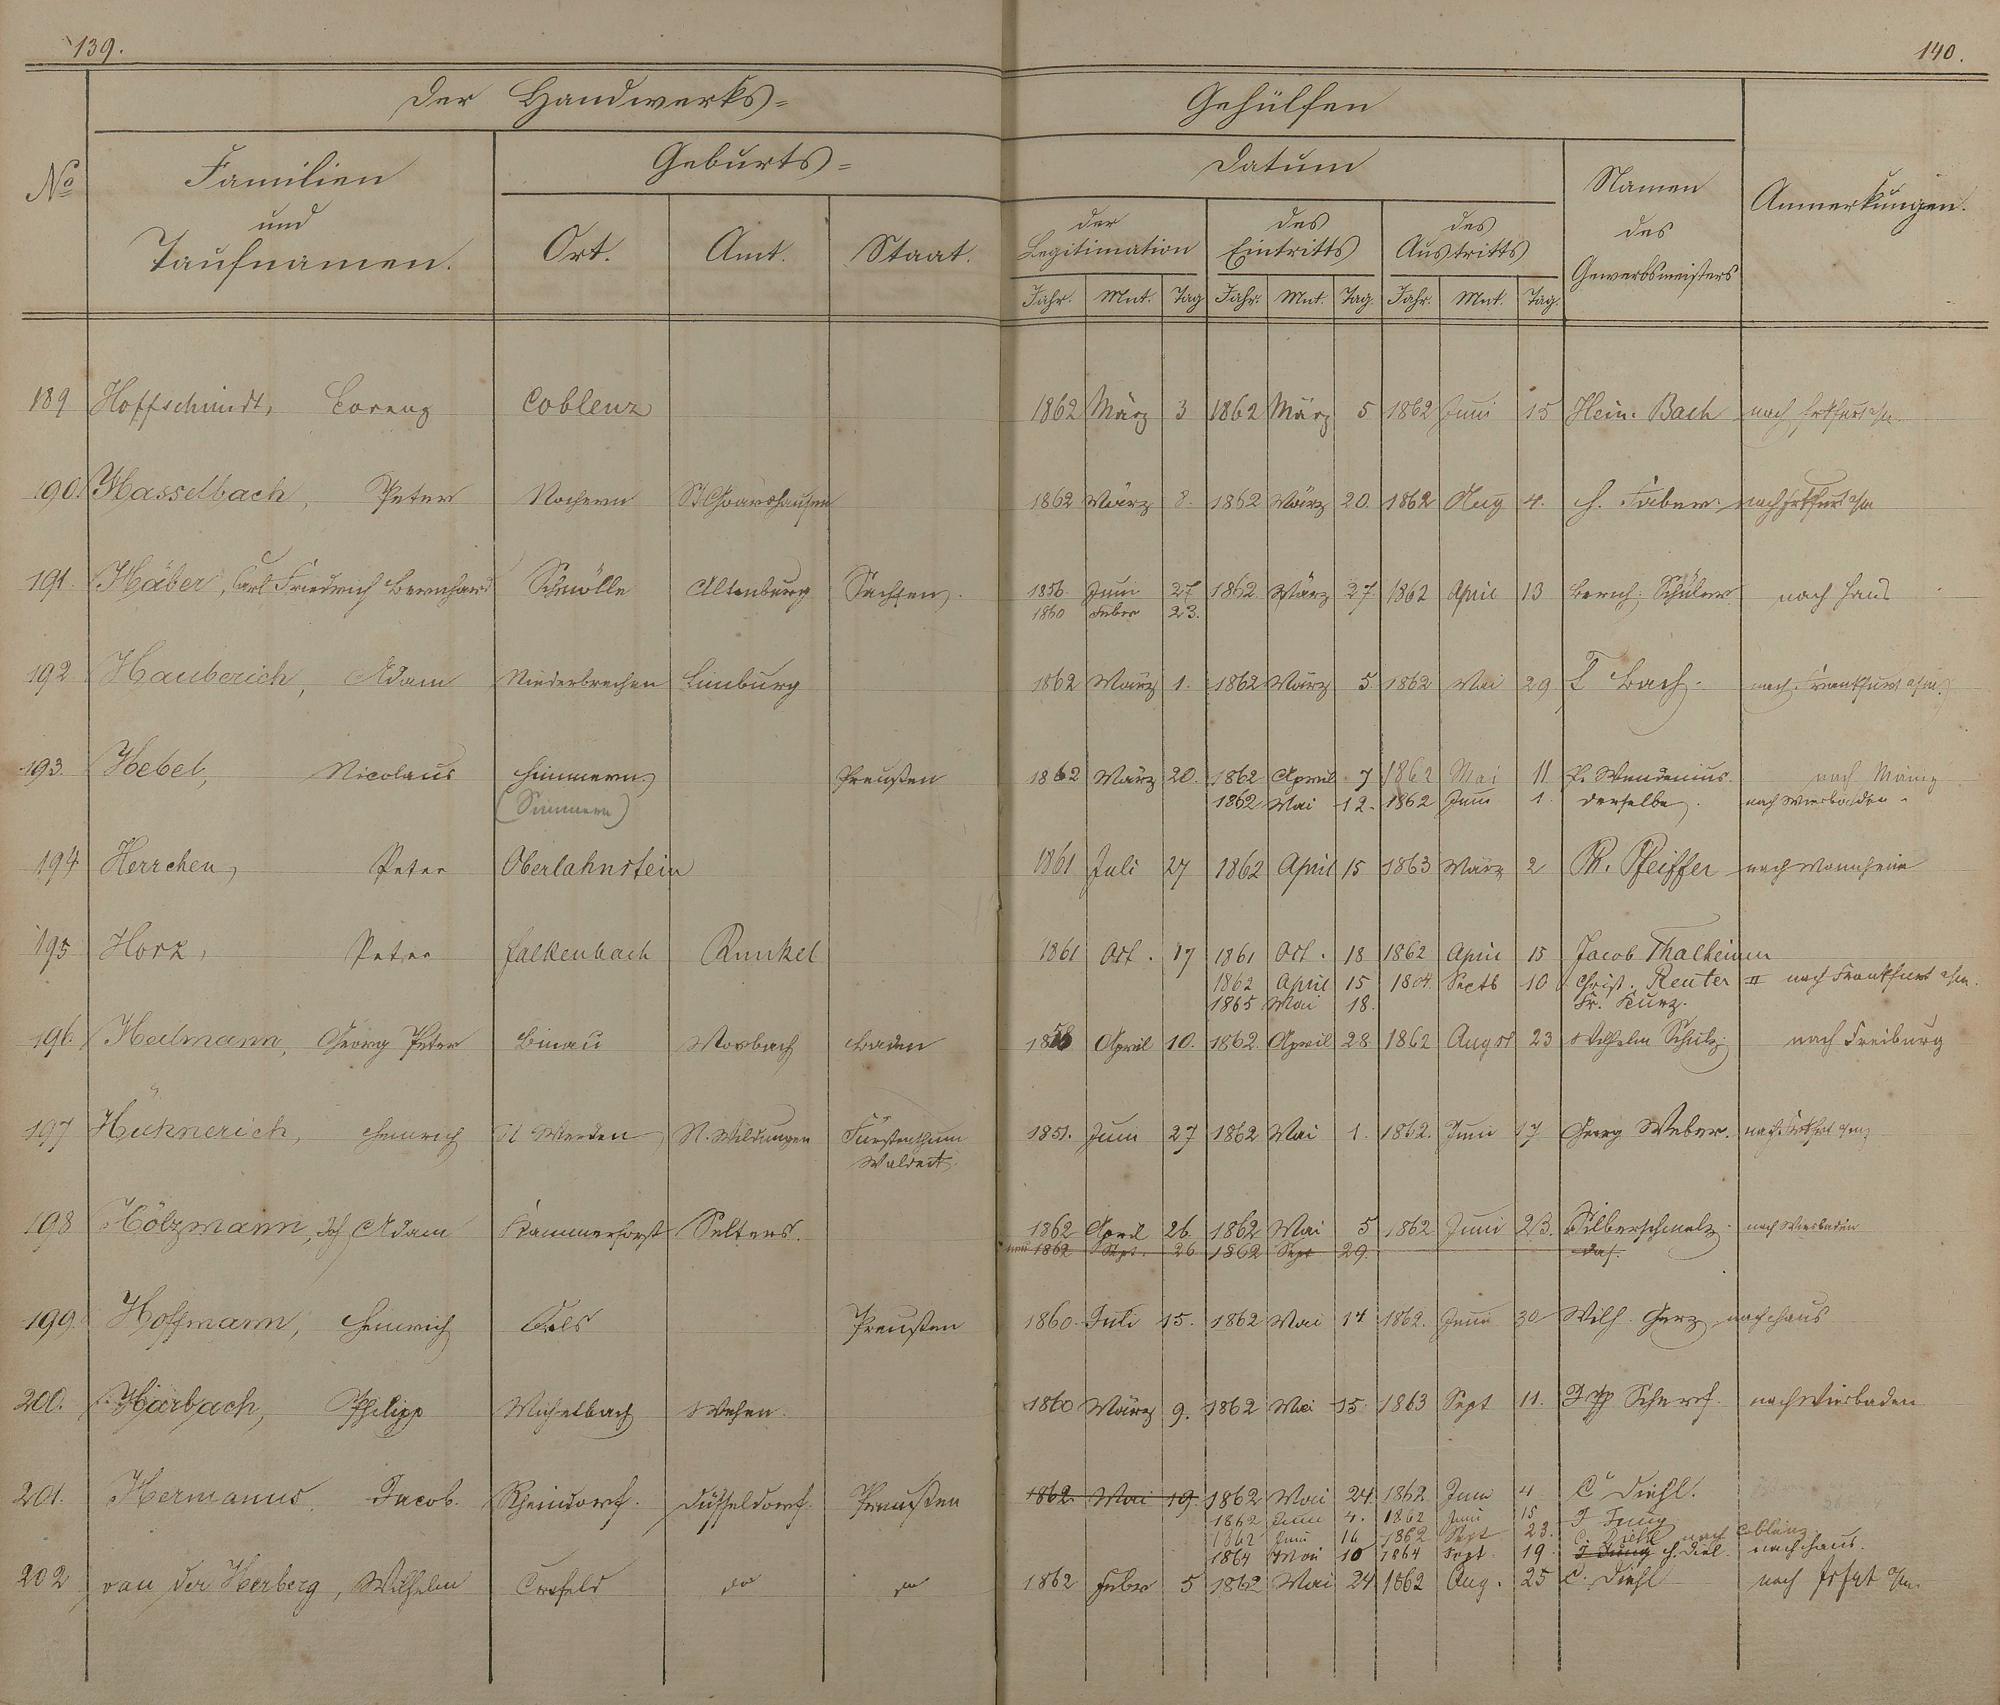 139. 140.
Der Handwerks= Gehülfen
No Familien und Taufnamen. Geburts= Datum Namen des Gewerbsmeisters Anmerkungen.
Ort. Amt. Staat. der Legitimation des Eintritts des Austritts
Jahr. Mnt. Tag Jahr. Mnt. Tag. Jahr. Mnt. Tag.
189 Hoffschmidt, Lorenz Coblenz 1862 März 3 1862 März 5 1862 Juni 15 Hein. Bach nach Frkfurt a/m
190. Hasselbach, Peter Nochern St Goarshausen 1862 März 8. 1862 März 20. 1862 Aug 4. H. Faber. nach Frkfurt a/m
191. Häber, Carl Friedrich Bernhard Schmölle Altenburg Sachsen. 1856. Juni 27 1862 März 27. 1862 April 13 Schüler nach Haus
1860 Feber 23.
192 Hauberich, Adam Niederbrechen Limburg 1862 März 1. 1862 März 5. 1862 Mai 29. Bach. nach Frankfurt a/m.
193. Hebel, Nicolaus Simmern. Preußen 1862 März 20. 1862 April 7 1862 Mai 11 nach Mainz
(Simmern) 1862 Mai 12. 1862 Juni 1. derselbe. nach Wiesbaden.
194 Herrchen, Peter Oberlahnstein 1861 Juli 27 1862 April 15 1863 März 2 Ph. Pfeiffer nach Mannheim
195 Horz, Peter Falkenbach Runkel 1861 Oct. 17 1861 Oct. 18 1862 April 15 Jacob Thalheimer
1862 April 15 1864. Sептb 10 Christ. Reuter II nach Frankfurt a/m.
1865 Mai 18. Fr. Kurz.
196. Heilmann, Georg Peter Binau Mosbach Baden April 10. 1862 April 28 1862 August 23 Wilhelm Schulz nach Freiburg
197 Heinrich N. Wildungen Fürstenthum 1851. Juni 27 1862 Mai 1. 1862. Juni 17 Georg Weber. nach Frkfrt a/m
Waldeck.
198 Hölzmann, Joh Adam Kammerforst Selters. 1862 April 26. 1862 Mai 5 1862 Juni 23. Silberschmelz. nach Wiesbaden
neu 1862 Sept. 26 1862 Sept 29. das.
199. Hoffmann, Heinrich Preußen 1860. Juli 15. 1862 Mai 14 1862. Juni 30 Wilh. Gerz nach Haus
200. Harbach, Philipp Michelbach Wehen. 1860 März 9. 1862 Mai 15. 1863 Sept 11. Scherf. nach Wiesbaden
201. Hermanns Jacob. Rheindorf. Düsseldorf. Preußen 1862. Mai 19 1862 Mai 24. 1862 Juni 4 C Diehl.
1862 Juni 4. 1862 Juni 15 J Jung
1862 Juni 16 1862 Sept 23. C. Diehl nach Coblenz
1864 Mai 10 1864 Sept. 19. J Jung H. Diel. nach Haus.
202 van der Herberg, Wilhelm Crefeld do do 1862 Feber 5 1862 Mai 24 1862 Aug. 25 C. Diehl nach Frkfrt a/m.